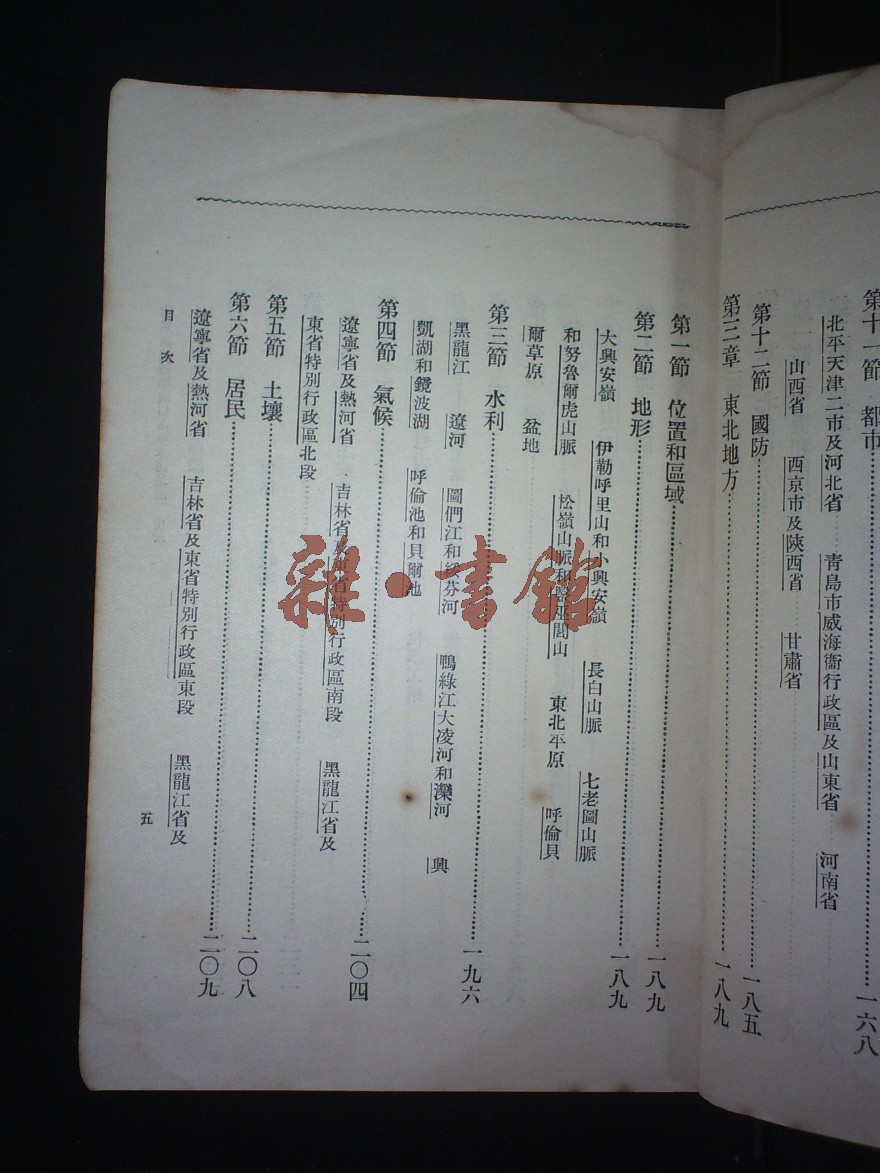 第十一節 都市……一六八
北平天津二市及河北省 青島市威海衞行政區及山東省 河南省
山西省 西京市及陝西省 甘肅省
第十二節 國防……一八五
第三章 東北地方……一八九
第一節 位置和區域……一八九
第二節 地形……一八九
大興安嶺 伊勒呼里山和小興安嶺 長白山脈 七老圖山脈
和努魯爾虎山脈 松嶺山脈和醫巫閭山 東北平原 呼倫貝
爾草原 盆地
第三節 水利……一九六
黑龍江 遼河 圖們江和綏芬河 鴨綠江大凌河和灤河 興
凱湖和鏡波湖 呼倫池和貝爾池
第四節 氣候……二〇四
遼寧省及熱河省 吉林省及東省特別行政區南段 黑龍江省及
東省特別行政區北段
第五節 土壤……二〇八
第六節 居民……二〇九
遼寧省及熱河省 吉林省及東省特別行政區東段 黑龍江省及
目次
五
雜·書館